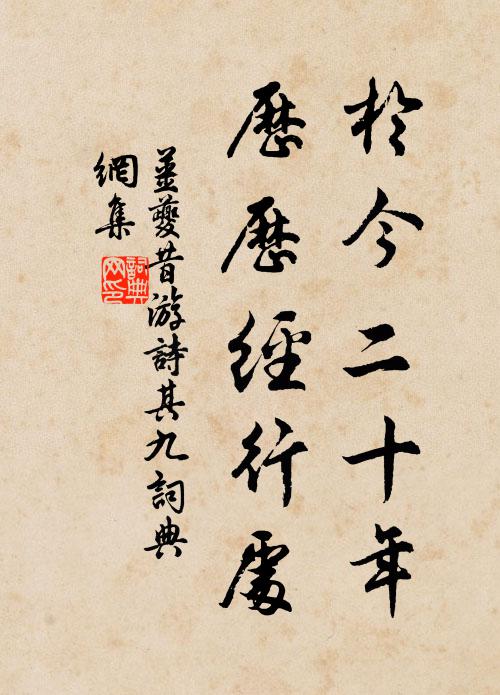 於今二十年
歷歷經行處
姜夔昔游詩其九詞典
網集
詞典
网印